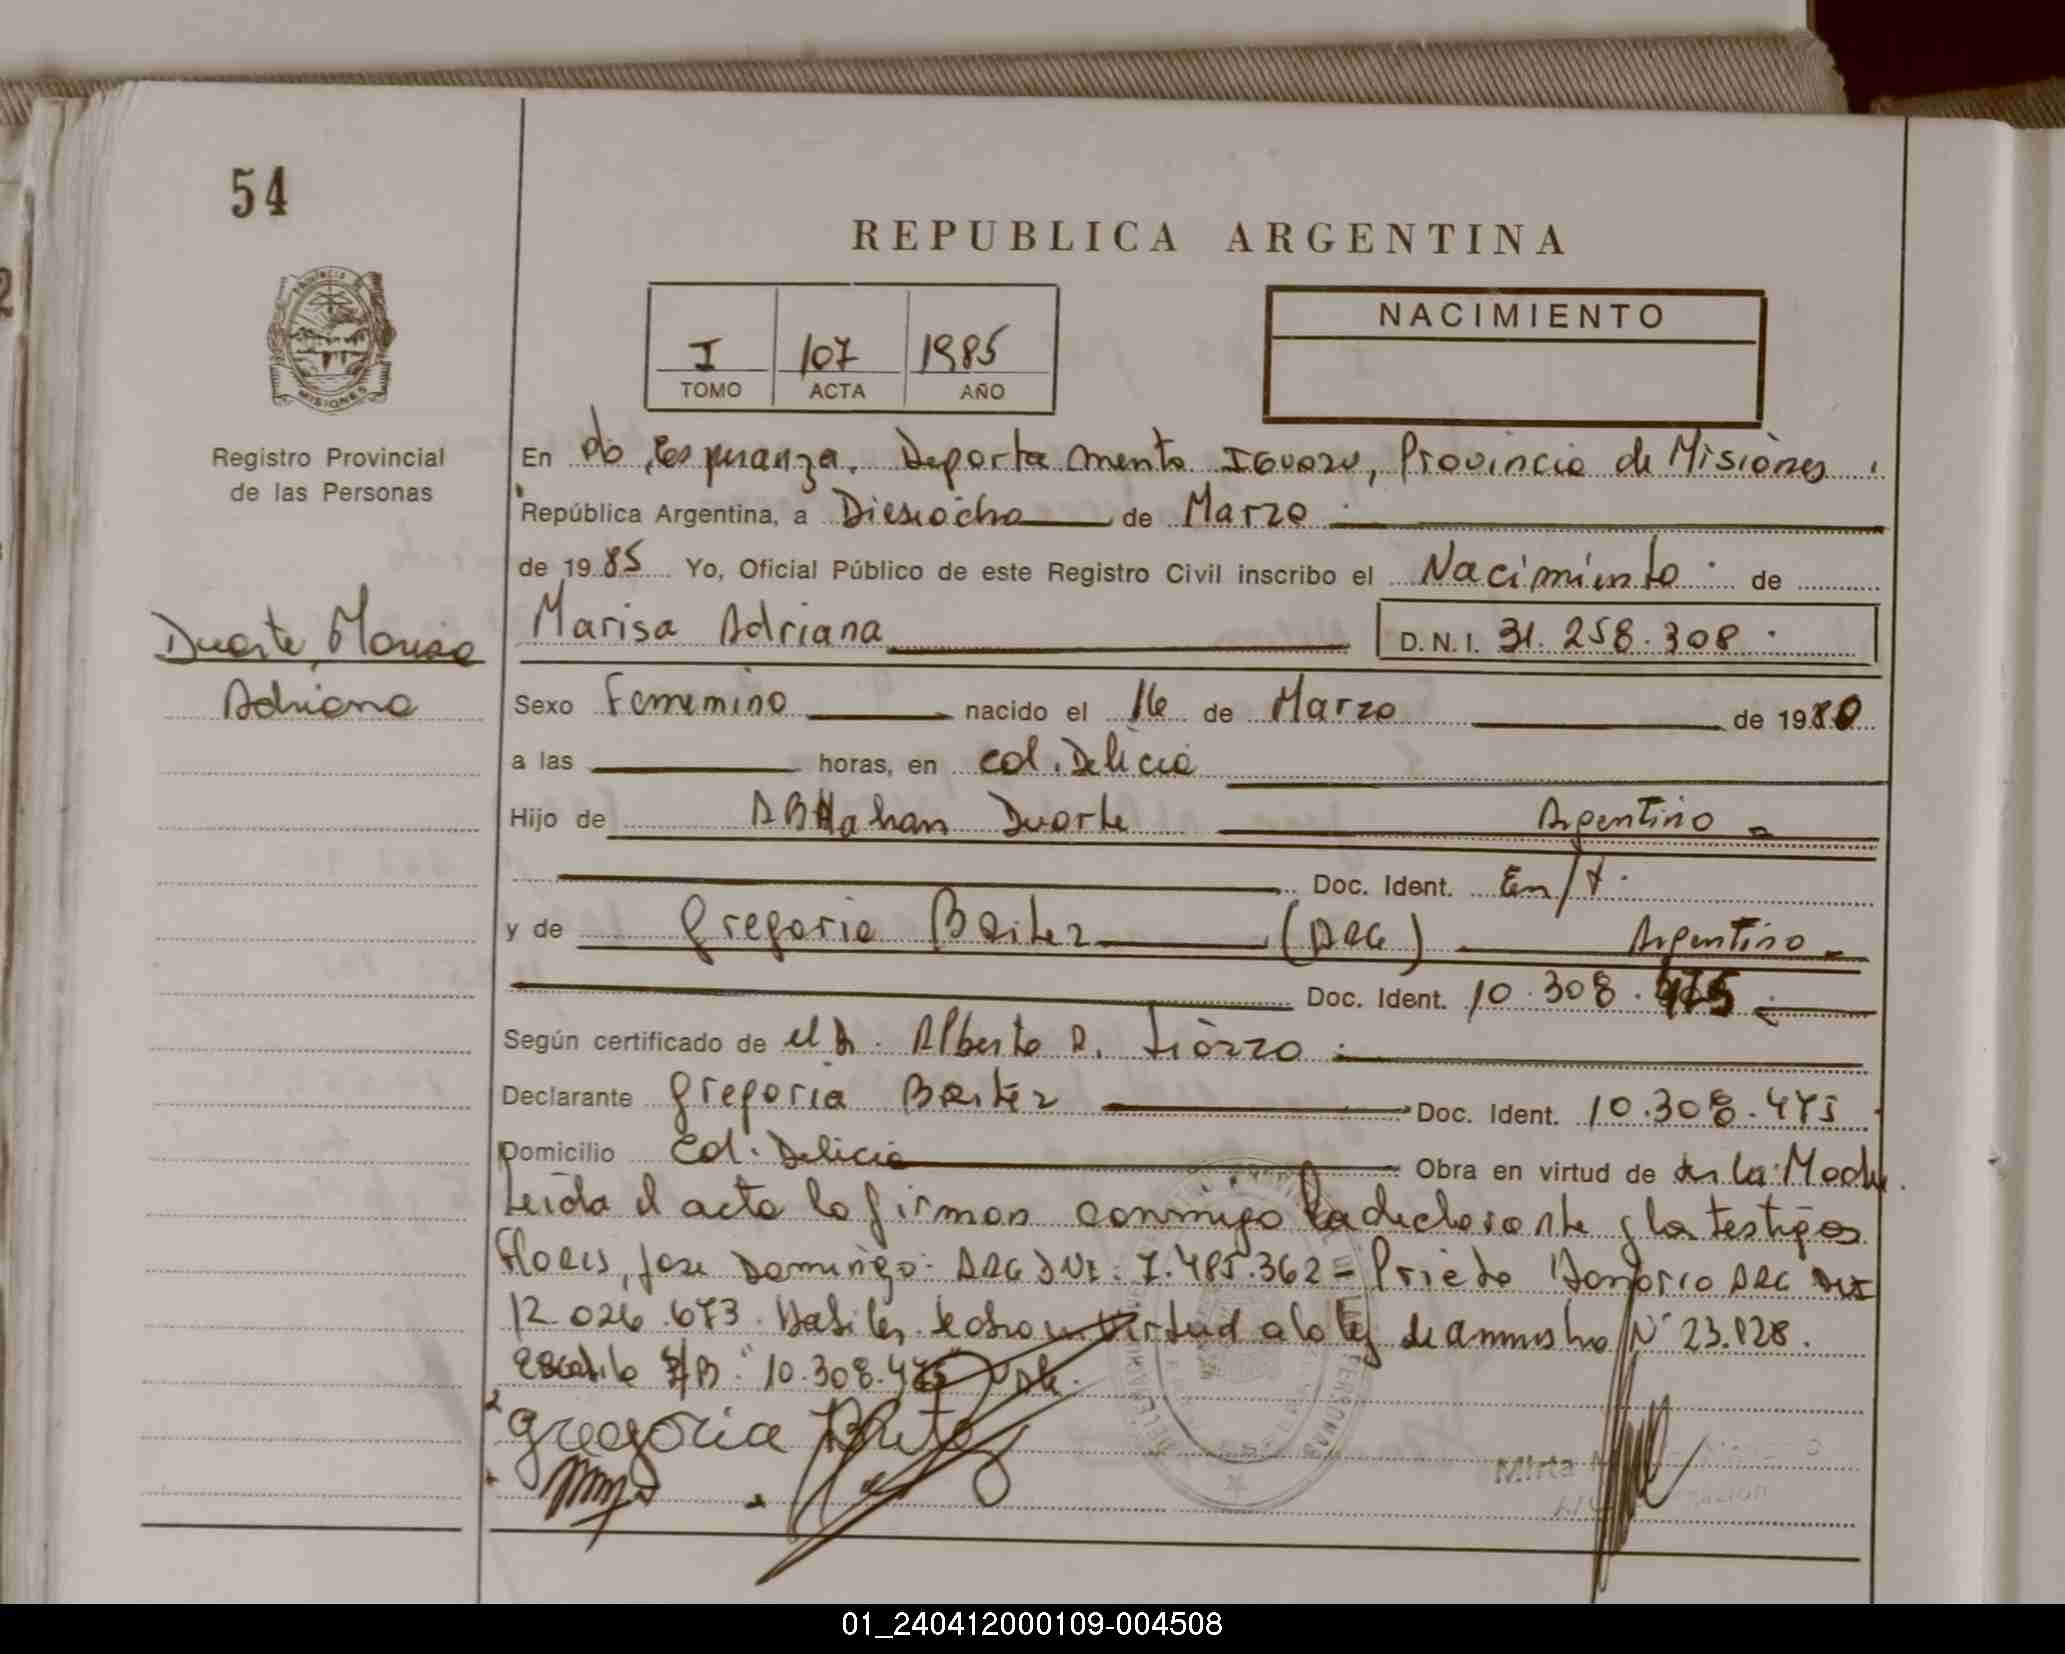 54
REPUBLICA ARGENTINA
I 107 1985
TOMO ACTA AÑO
NACIMIENTO
PROVINCIA DE MISIONES
Registro Provincial
de las Personas
Duarte, Marisa
Adriana
En Pto. Esperanza. Departamento Iguazu, Provincia de Misiones.
República Argentina, a Diesiocho de Marzo
de 1985 Yo, Oficial Público de este Registro Civil inscribo el Nacimiento de
Marisa Adriana D.N.I. 31.258.308
Sexo Femenino nacido el 16 de Marzo de 1980
a las horas, en Col. Delicia
Hijo de Duarte Argentino
Doc. Ident. En/t.
y de Gregoria Beitez (ARG) Argentino
Doc. Ident. 10.308.475
Según certificado de el Dr. Alberto R.
Declarante Gregoria Beitez Doc. Ident. 10.308.475
Domicilio Col. Delicia Obra en virtud de ser la Madre.
Leida el acta la firman conmigo la declarante y los testigos
Flores, Jose Domingo. ARG DNI. 7.485.362 - Prieto Honorio ARG DNI
12.026.673. Habiles. virtud a la ley de amnistia N° 23.128.
10.308.475 Vale.
Gregoria
Mirta
PERSONAS
01_240412000109-004508